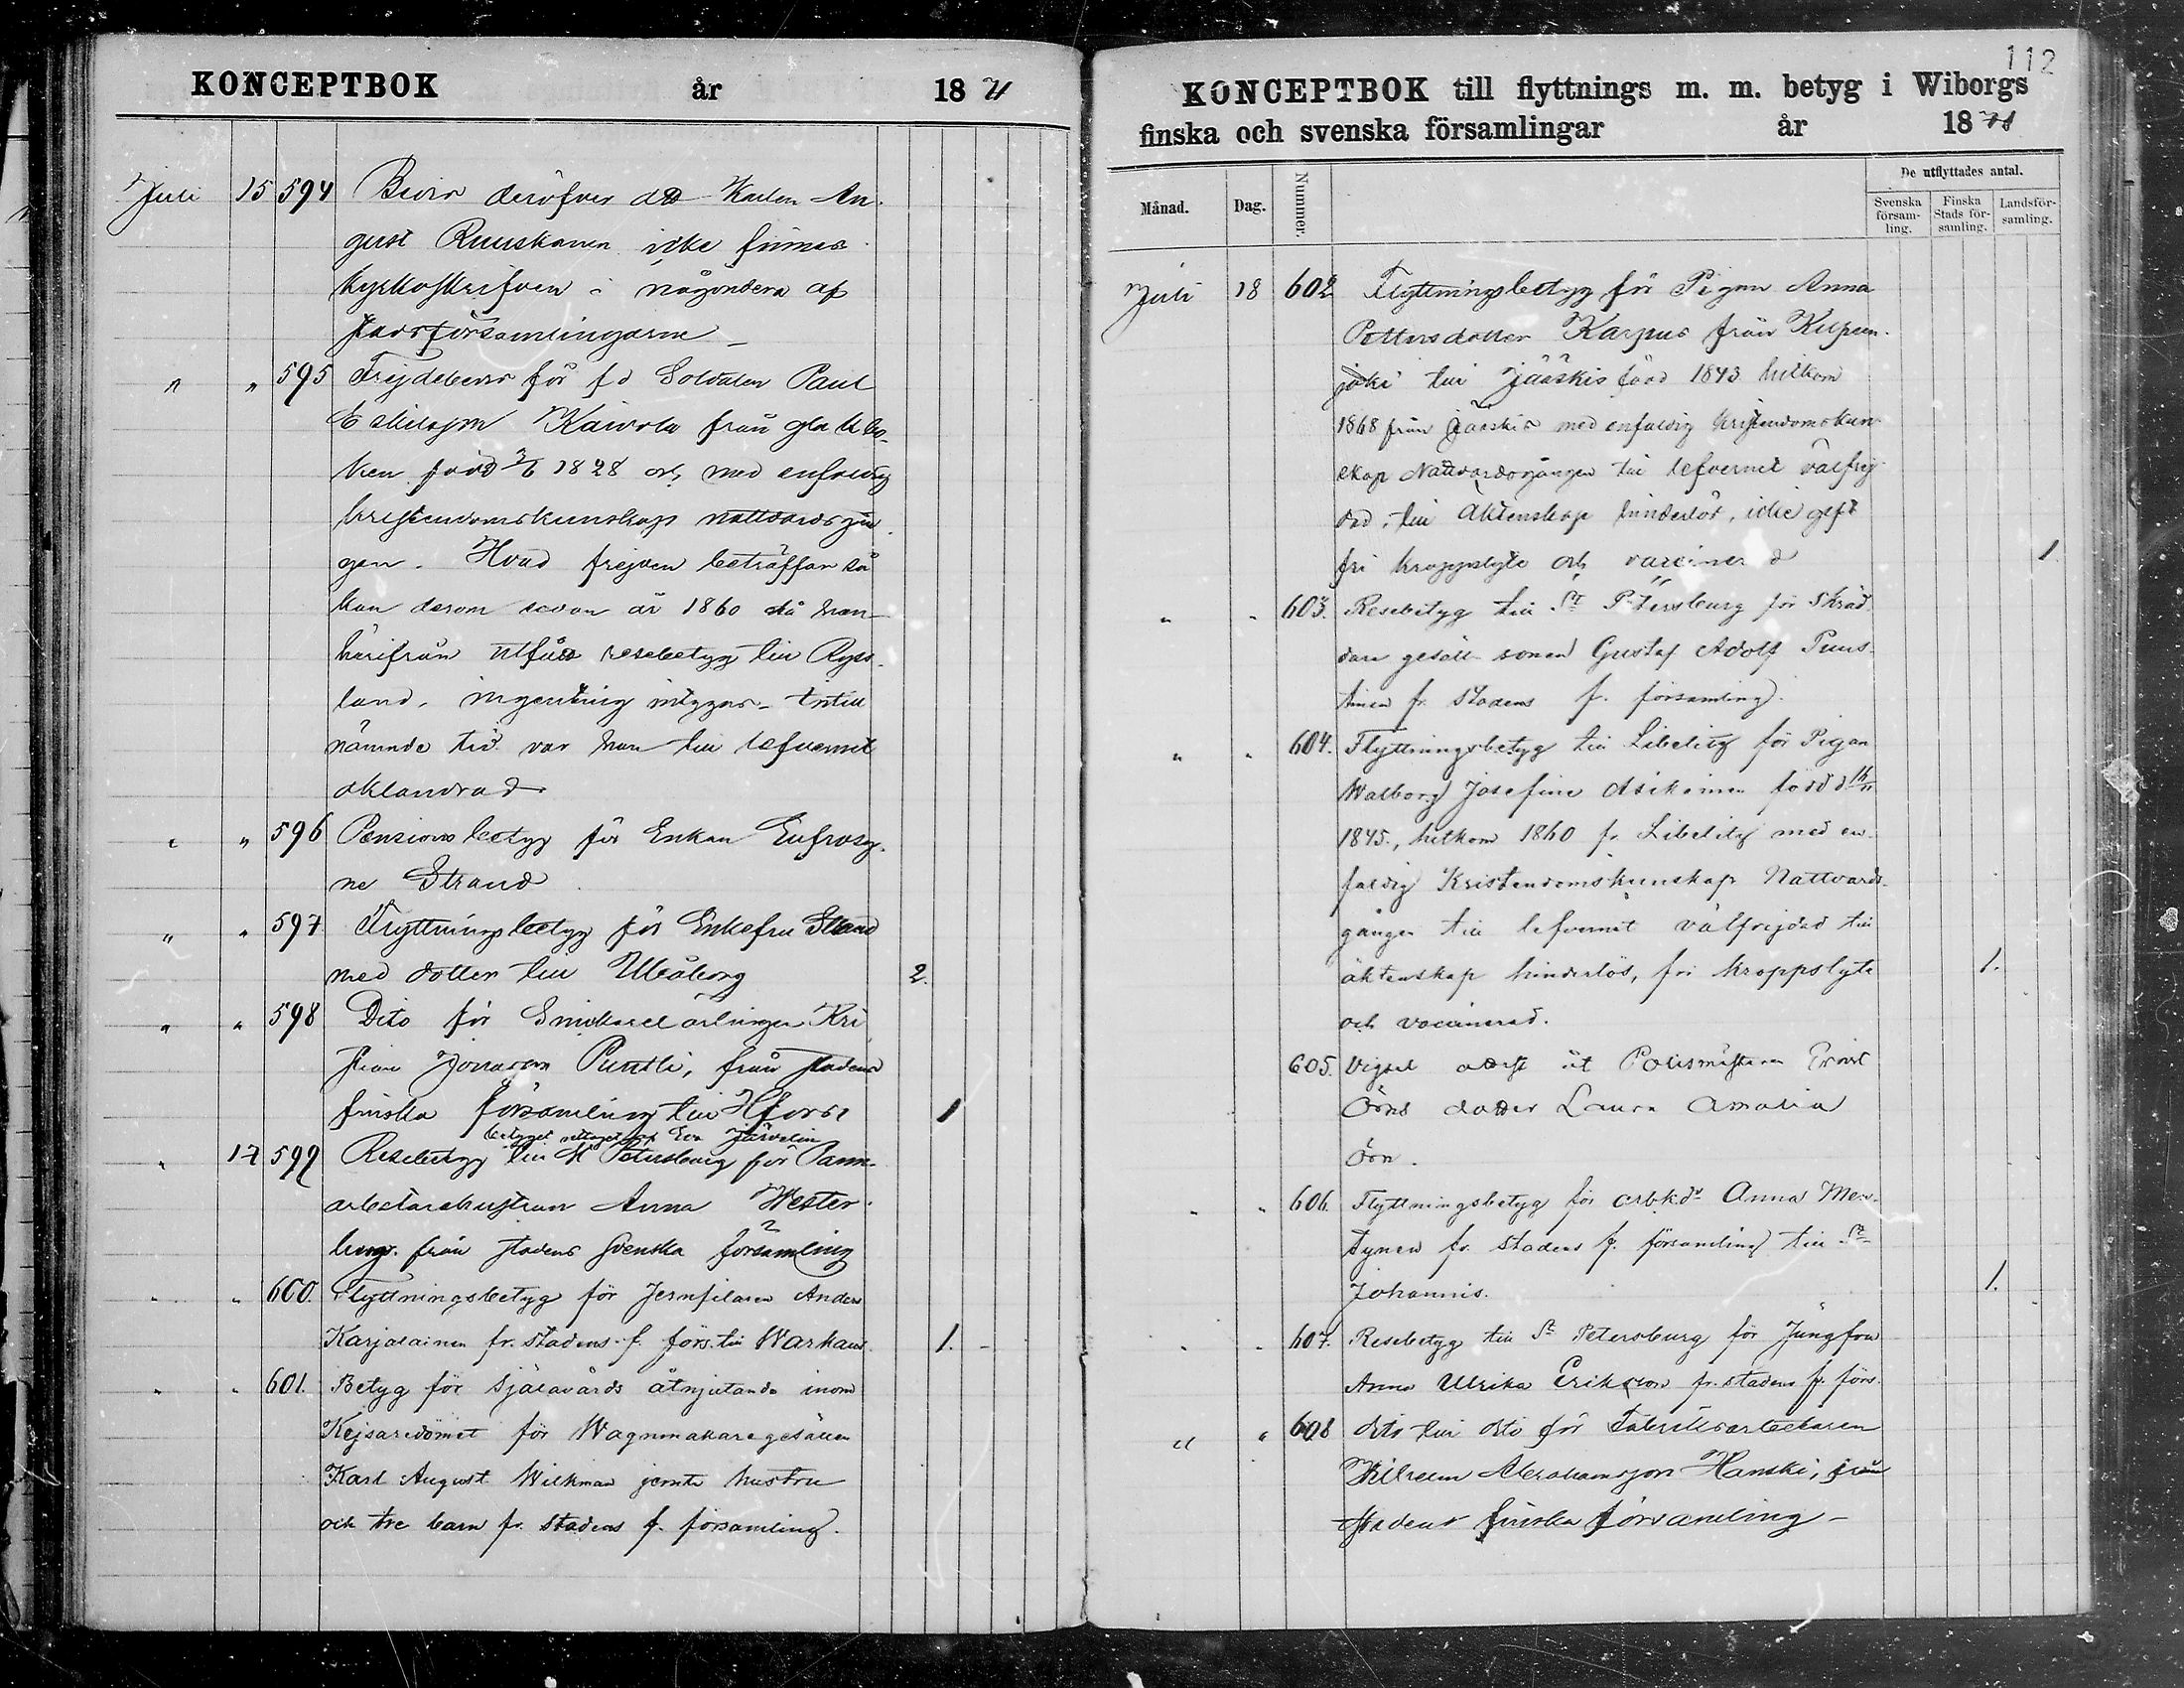 KONCEPTBOK år 1871
Juli 15 594 Bevis deröfver att Karlen Au-
gust Ruuskanen icke finnes
kyrkoskrifven i någondera af
stadsförsamlingarne
" " 595 Frejdebevis för f d Soldaten Paul
Eskilsson Kaivola från
ken född 1828 och med enfaldig
kristendomskunskap nattvardsgån
gen. Hvad frejden beträffar så
kan derom sedan år 1860 då han
härifrån utfått resebetyg till Ryss-
land, ingenting intygas. Intill
nämnde tid var han till lefvernet
oklandrad
" " 596 Pensions betyg för Enkan Eufrosy-
ne Strand
" " 597 Flyttningsbetyg för Enkefru Strand
med dotter till Uleåborg 2.
" " 598 Dito för Smideslärlingen Kri
stian Jonasson Puntti, från stadens
finska församling till Hfors 1
betyget uttaget af Eva Järvelin
" 17 599 Resebetyg till St Petersburg för
arbetarehustrun Anna Wester-
berg från stadens svenska församling
" " 600. Flyttningsbetyg för Jernfilaren Anders
Karjalainen fr. stadens f. förs. till Warkaus 1.
" " 601. Betyg för själavårds åtnjutande inom
Kejsaredömet för Wagnmakaregesällen
Karl August Wilkman jemte hustru
och tre barn fr. stadens f. församling.
112
KONCEPTBOK till flyttnings m. m. betyg i Wiborgs
finska och svenska församlingar år 1871
Månad. Dag. Nummer. De utflyttades antal.
Svenska försam-ling. Finska Stads för-samling. Landsför-samling.
Juli 18 602 Flyttningsbetyg för Pigan Anna
Pettersdotter Karpus från Kilpeen-
joki till Jääskis född 1843 hitkom
1868 från Jääskis med enfaldig kristendomskun
skap Nattvardsgången till lefvernet välfrej
dad, till äktenskap hinderlös, icke gift
fri kroppslyte och vaccinerad 1
" " 603. Resebetyg till St Petersburg för Skräd
dare gesäll sonen Gustaf Adolf Puus-
tinen fr. stadens f. församling.
" " 604. Flyttningsbetyg till Libelitz för Pigan
Walborg Josefina Asikainen född d 16/11
1845., hitkom 1860 fr. Libelitz med en-
faldig Kristendomskunskap Nattvards-
gången till lefvernet välfrejdad till
äktenskap hinderlös, fri kroppslyte 1.
och vaccinerad.
605. Vigsel attest åt Polismästaren Ernst
Örns dotter Laura Amalia
Örn.
" " 606. Flyttningsbetyg för arbkdr Anna Men-
tynen fr. stadens f. församling till St
Johannis. 1.
" " 607. Resebetyg till St Petersburg för Jungfrun
Anna Ulrika Eriksson fr. stadens f. förs.
" " 608 dito till dito för Fabriksarbetaren
Wilhelm Abrahamsson Hanski, från
stadens finska församling